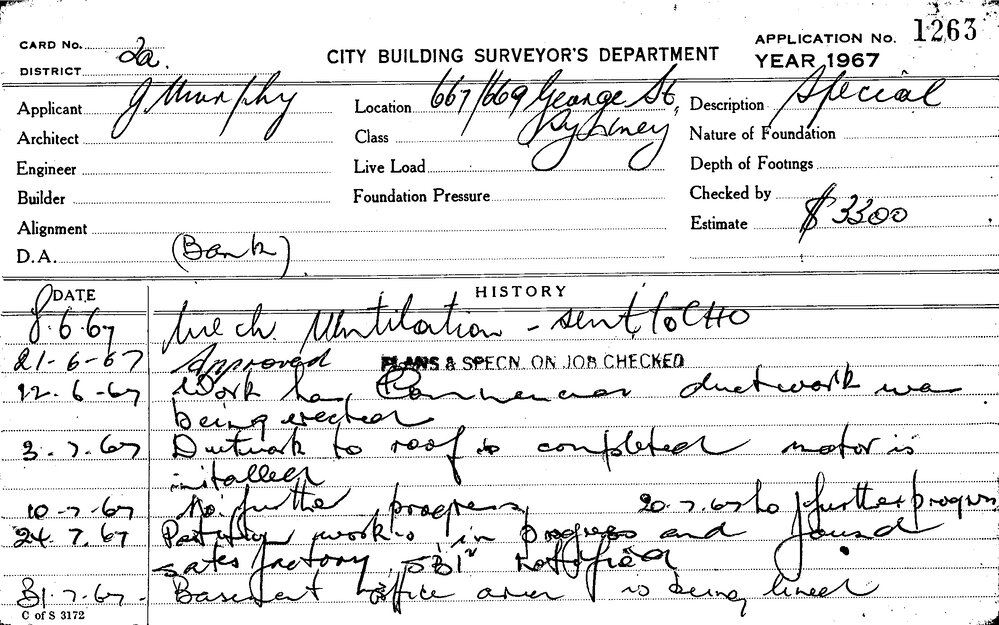 CARD No. 2a.
DISTRICT
CITY BUILDING SURVEYOR'S DEPARTMENT
APPLICATION No. 1263
YEAR 1967
Applicant J Murphy
Location 667/669 George St,
Sydney
Description Special
Architect
Class
Nature of Foundation
Engineer
Live Load
Depth of Footings
Builder
Foundation Pressure
Checked by
Alignment
Estimate $3300
D.A. (Bank)
DATE
HISTORY
8.6.67 Mech. Ventilation - sent to CHO
21-6-67 Approved PLANS & SPECN. ON JOB CHECKED
22.6-67 Work has Commenced ductwork was
being erected
3.7.67 Ductwork to roof is completed motor is
installed
10-7-67 No further progress 20.7.67 No further progress
24.7.67 work is in progress and found
satisfactory, notified
31.7.67- Basement office area is being lined
C of S 3172